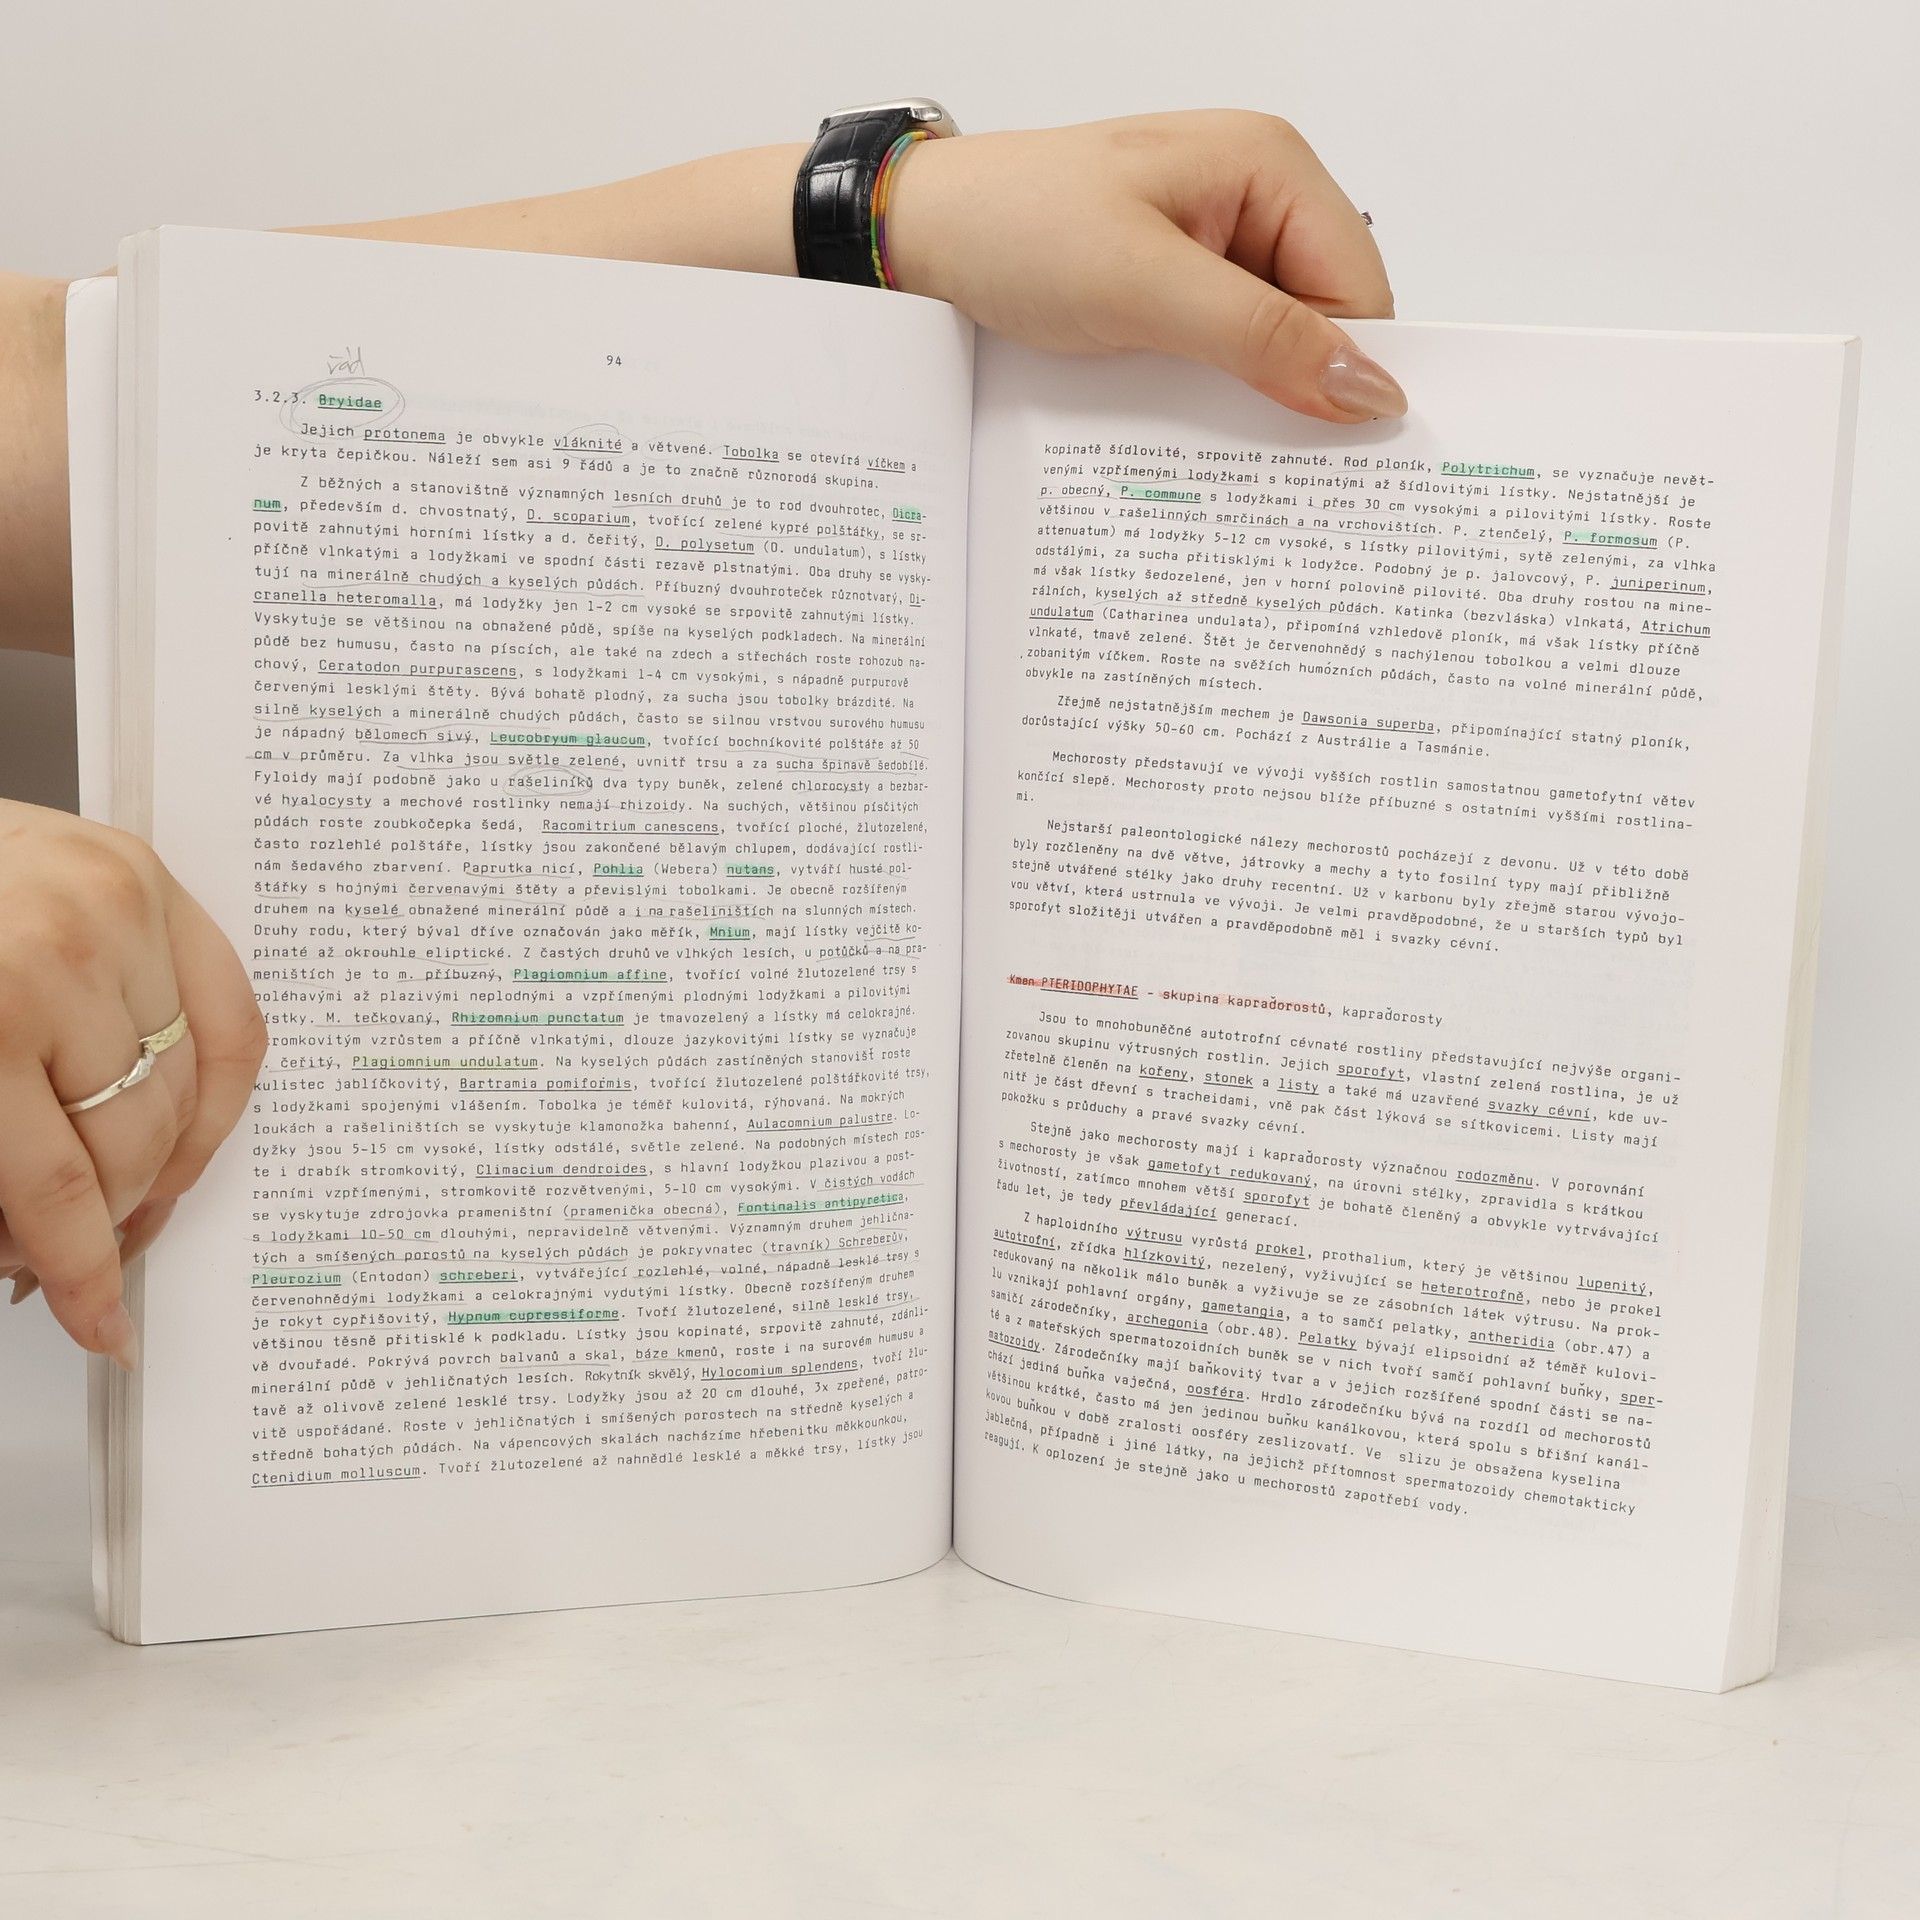 řád
94
3.2.3. Bryidae
Jejich protonema je obvykle vláknité a větvené. Tobolka se otevírá víčkem a
je kryta čepičkou. Náleží sem asi 9 řádů a je to značně různorodá skupina.
Z běžných a stanovištně významných lesních druhů je to rod dvouhrotec, Dicra-
num, především d. chvostnatý, D. scoparium, tvořící zelené kypré polštářky, se sr-
povitě zahnutými horními lístky a d. čeřitý, D. polysetum (D. undulatum), s lístky
příčně vlnkatými a lodyžkami ve spodní části rezavě plstnatými. Oba druhy se vysky-
tují na minerálně chudých a kyselých půdách. Příbuzný dvouhroteček různotvarý, Di-
cranella heteromalla, má lodyžky jen 1-2 cm vysoké se srpovitě zahnutými lístky.
Vyskytuje se většinou na obnažené půdě, spíše na kyselých podkladech. Na minerální
půdě bez humusu, často na píscích, ale také na zdech a střechách roste rohozub na-
chový, Ceratodon purpurascens, s lodyžkami 1-4 cm vysokými, s nápadně purpurově
červenými lesklými štěty. Bývá bohatě plodný, za sucha jsou tobolky brázdité. Na
silně kyselých a minerálně chudých půdách, často se silnou vrstvou surového humusu
je nápadný bělomech sivý, Leucobryum glaucum, tvořící bochníkovité polštáře až 50
cm v průměru. Za vlhka jsou světle zelené, uvnitř trsu a za sucha špinavě šedobílé.
Fyloidy mají podobně jako u rašeliníků dva typy buněk, zelené chlorocysty a bezbar-
vé hyalocysty a mechové rostlinky nemají rhizoidy. Na suchých, většinou písčitých
půdách roste zoubkočepka šedá, Racomitrium canescens, tvořící ploché, žlutozelené,
často rozlehlé polštáře, lístky jsou zakončené bělavým chlupem, dodávající rostli-
nám šedavého zbarvení. Paprutka nicí, Pohlia (Webera) nutans, vytváří husté pol-
štářky s hojnými červenavými štěty a převislými tobolkami. Je obecně rozšířeným
druhem na kyselé obnažené minerální půdě a i na rašeliništích na slunných místech.
Druhy rodu, který býval dříve označován jako měřík, Mnium, mají lístky vejčitě ko-
pinaté až okrouhle eliptické. Z častých druhů ve vlhkých lesích, u potůčků a na pra-
meništích je to m. příbuzný, Plagiomnium affine, tvořící volné žlutozelené trsy s
poléhavými až plazivými neplodnými a vzpřímenými plodnými lodyžkami a pilovitými
lístky. M. tečkovaný, Rhizomnium punctatum je tmavozelený a lístky má celokrajné.
Stromkovitým vzrůstem a příčně vlnkatými, dlouze jazykovitými lístky se vyznačuje
. čeřitý, Plagiomnium undulatum. Na kyselých půdách zastíněných stanovišť roste
kulistec jablíčkovitý, Bartramia pomiformis, tvořící žlutozelené polštářkovité trsy,
s lodyžkami spojenými vlášením. Tobolka je téměř kulovitá, rýhovaná. Na mokrých
loukách a rašeliništích se vyskytuje klamonožka bahenní, Aulacomnium palustre. Lo-
dyžky jsou 5-15 cm vysoké, lístky odstálé, světle zelené. Na podobných místech ros-
te i drabík stromkovitý, Climacium dendroides, s hlavní lodyžkou plazivou a post-
ranními vzpřímenými, stromkovitě rozvětvenými, 5-10 cm vysokými. V čistých vodách
se vyskytuje zdrojovka prameništní (pramenička obecná), Fontinalis antipyretica,
s lodyžkami 10-50 cm dlouhými, nepravidelně větvenými. Významným druhem jehlična-
tých a smíšených porostů na kyselých půdách je pokryvnatec (travník) Schreberův,
Pleurozium (Entodon) schreberi, vytvářející rozlehlé, volné, nápadně lesklé trsy s
červenohnědými lodyžkami a celokrajnými vydutými lístky. Obecně rozšířeným druhem
je rokyt cypřišovitý, Hypnum cupressiforme. Tvoří žlutozelené, silně lesklé trsy,
většinou těsně přitisklé k podkladu. Lístky jsou kopinaté, srpovitě zahnuté, zdánli-
vě dvouřadé. Pokrývá povrch balvanů a skal, báze kmenů, roste i na surovém humusu a
minerální půdě v jehličnatých lesích. Rokytník skvělý, Hylocomium splendens, tvoří žlu-
tavě až olivově zelené lesklé trsy. Lodyžky jsou až 20 cm dlouhé, 3x zpeřené, patro-
vitě uspořádané. Roste v jehličnatých i smíšených porostech na středně kyselých a
středně bohatých půdách. Na vápencových skalách nacházíme hřebenitku měkkounkou,
Ctenidium molluscum. Tvoří žlutozelené až nahnědlé lesklé a měkké trsy, lístky jsou
kopinatě šídlovité, srpovitě zahnuté. Rod ploník, Polytrichum, se vyznačuje nevět-
venými vzpřímenými lodyžkami s kopinatými až šídlovitými lístky. Nejstatnější je
p. obecný, P. commune s lodyžkami i přes 30 cm vysokými a pilovitými lístky. Roste
většinou v rašelinných smrčinách a na vrchovištích. P. ztenčelý, P. formosum (P.
attenuatum) má lodyžky 5-12 cm vysoké, s lístky pilovitými, sytě zelenými, za vlhka
odstálými, za sucha přitisklými k lodyžce. Podobný je p. jalovcový, P. juniperinum,
má však lístky šedozelené, jen v horní polovině pilovité. Oba druhy rostou na mine-
rálních, kyselých až středně kyselých půdách. Katinka (bezvláska) vlnkatá, Atrichum
undulatum (Catharinea undulata), připomíná vzhledově ploník, má však lístky příčně
vlnkaté, tmavě zelené. Štět je červenohnědý s nachýlenou tobolkou a velmi dlouze
zobanitým víčkem. Roste na svěžích humózních půdách, často na volné minerální půdě,
obvykle na zastíněných místech.
Zřejmě nejstatnějším mechem je Dawsonia superba, připomínající statný ploník,
dorůstající výšky 50-60 cm. Pochází z Austrálie a Tasmánie.
Mechorosty představují ve vývoji vyšších rostlin samostatnou gametofytní větev
končící slepě. Mechorosty proto nejsou blíže příbuzné s ostatními vyššími rostlina-
mi.
Nejstarší paleontologické nálezy mechorostů pocházejí z devonu. Už v této době
byly rozčleněny na dvě větve, játrovky a mechy a tyto fosilní typy mají přibližně
stejně utvářené stélky jako druhy recentní. Už v karbonu byly zřejmě starou vývojo-
vou větví, která ustrnula ve vývoji. Je velmi pravděpodobné, že u starších typů byl
sporofyt složitěji utvářen a pravděpodobně měl i svazky cévní.
Kmen PTERIDOPHYTAE - skupina kapraďorostů, kapraďorosty
Jsou to mnohobuněčné autotrofní cévnaté rostliny představující nejvýše organi-
zovanou skupinu výtrusných rostlin. Jejich sporofyt, vlastní zelená rostlina, je už
zřetelně členěn na kořeny, stonek a listy a také má uzavřené svazky cévní, kde uv-
nitř je část dřevní s tracheidami, vně pak část lýková se sítkovicemi. Listy mají
pokožku s průduchy a pravé svazky cévní.
Stejně jako mechorosty mají i kapraďorosty význačnou rodozměnu. V porovnání
s mechorosty je však gametofyt redukovaný, na úrovni stélky, zpravidla s krátkou
životností, zatímco mnohem větší sporofyt je bohatě členěný a obvykle vytrvávající
řadu let, je tedy převládající generací.
Z haploidního výtrusu vyrůstá prokel, prothalium, který je většinou lupenitý,
autotrofní, zřídka hlízkovitý, nezelený, vyživující se heterotrofně, nebo je prokel
redukovaný na několik málo buněk a vyživuje se ze zásobních látek výtrusu. Na prok-
lu vznikají pohlavní orgány, gametangia, a to samčí pelatky, antheridia (obr.47) a
samičí zárodečníky, archegonia (obr.48). Pelatky bývají elipsoidní až téměř kulovi-
té a z mateřských spermatozoidních buněk se v nich tvoří samčí pohlavní buňky, sper-
matozoidy. Zárodečníky mají baňkovitý tvar a v jejich rozšířené spodní části se na-
chází jediná buňka vaječná, oosféra. Hrdlo zárodečníku bývá na rozdíl od mechorostů
většinou krátké, často má jen jedinou buňku kanálkovou, která spolu s břišní kanál-
kovou buňkou v době zralosti oosféry zeslizovatí. Ve slizu je obsažena kyselina
jablečná, případně i jiné látky, na jejichž přítomnost spermatozoidy chemotakticky
reagují. K oplození je stejně jako u mechorostů zapotřebí vody.